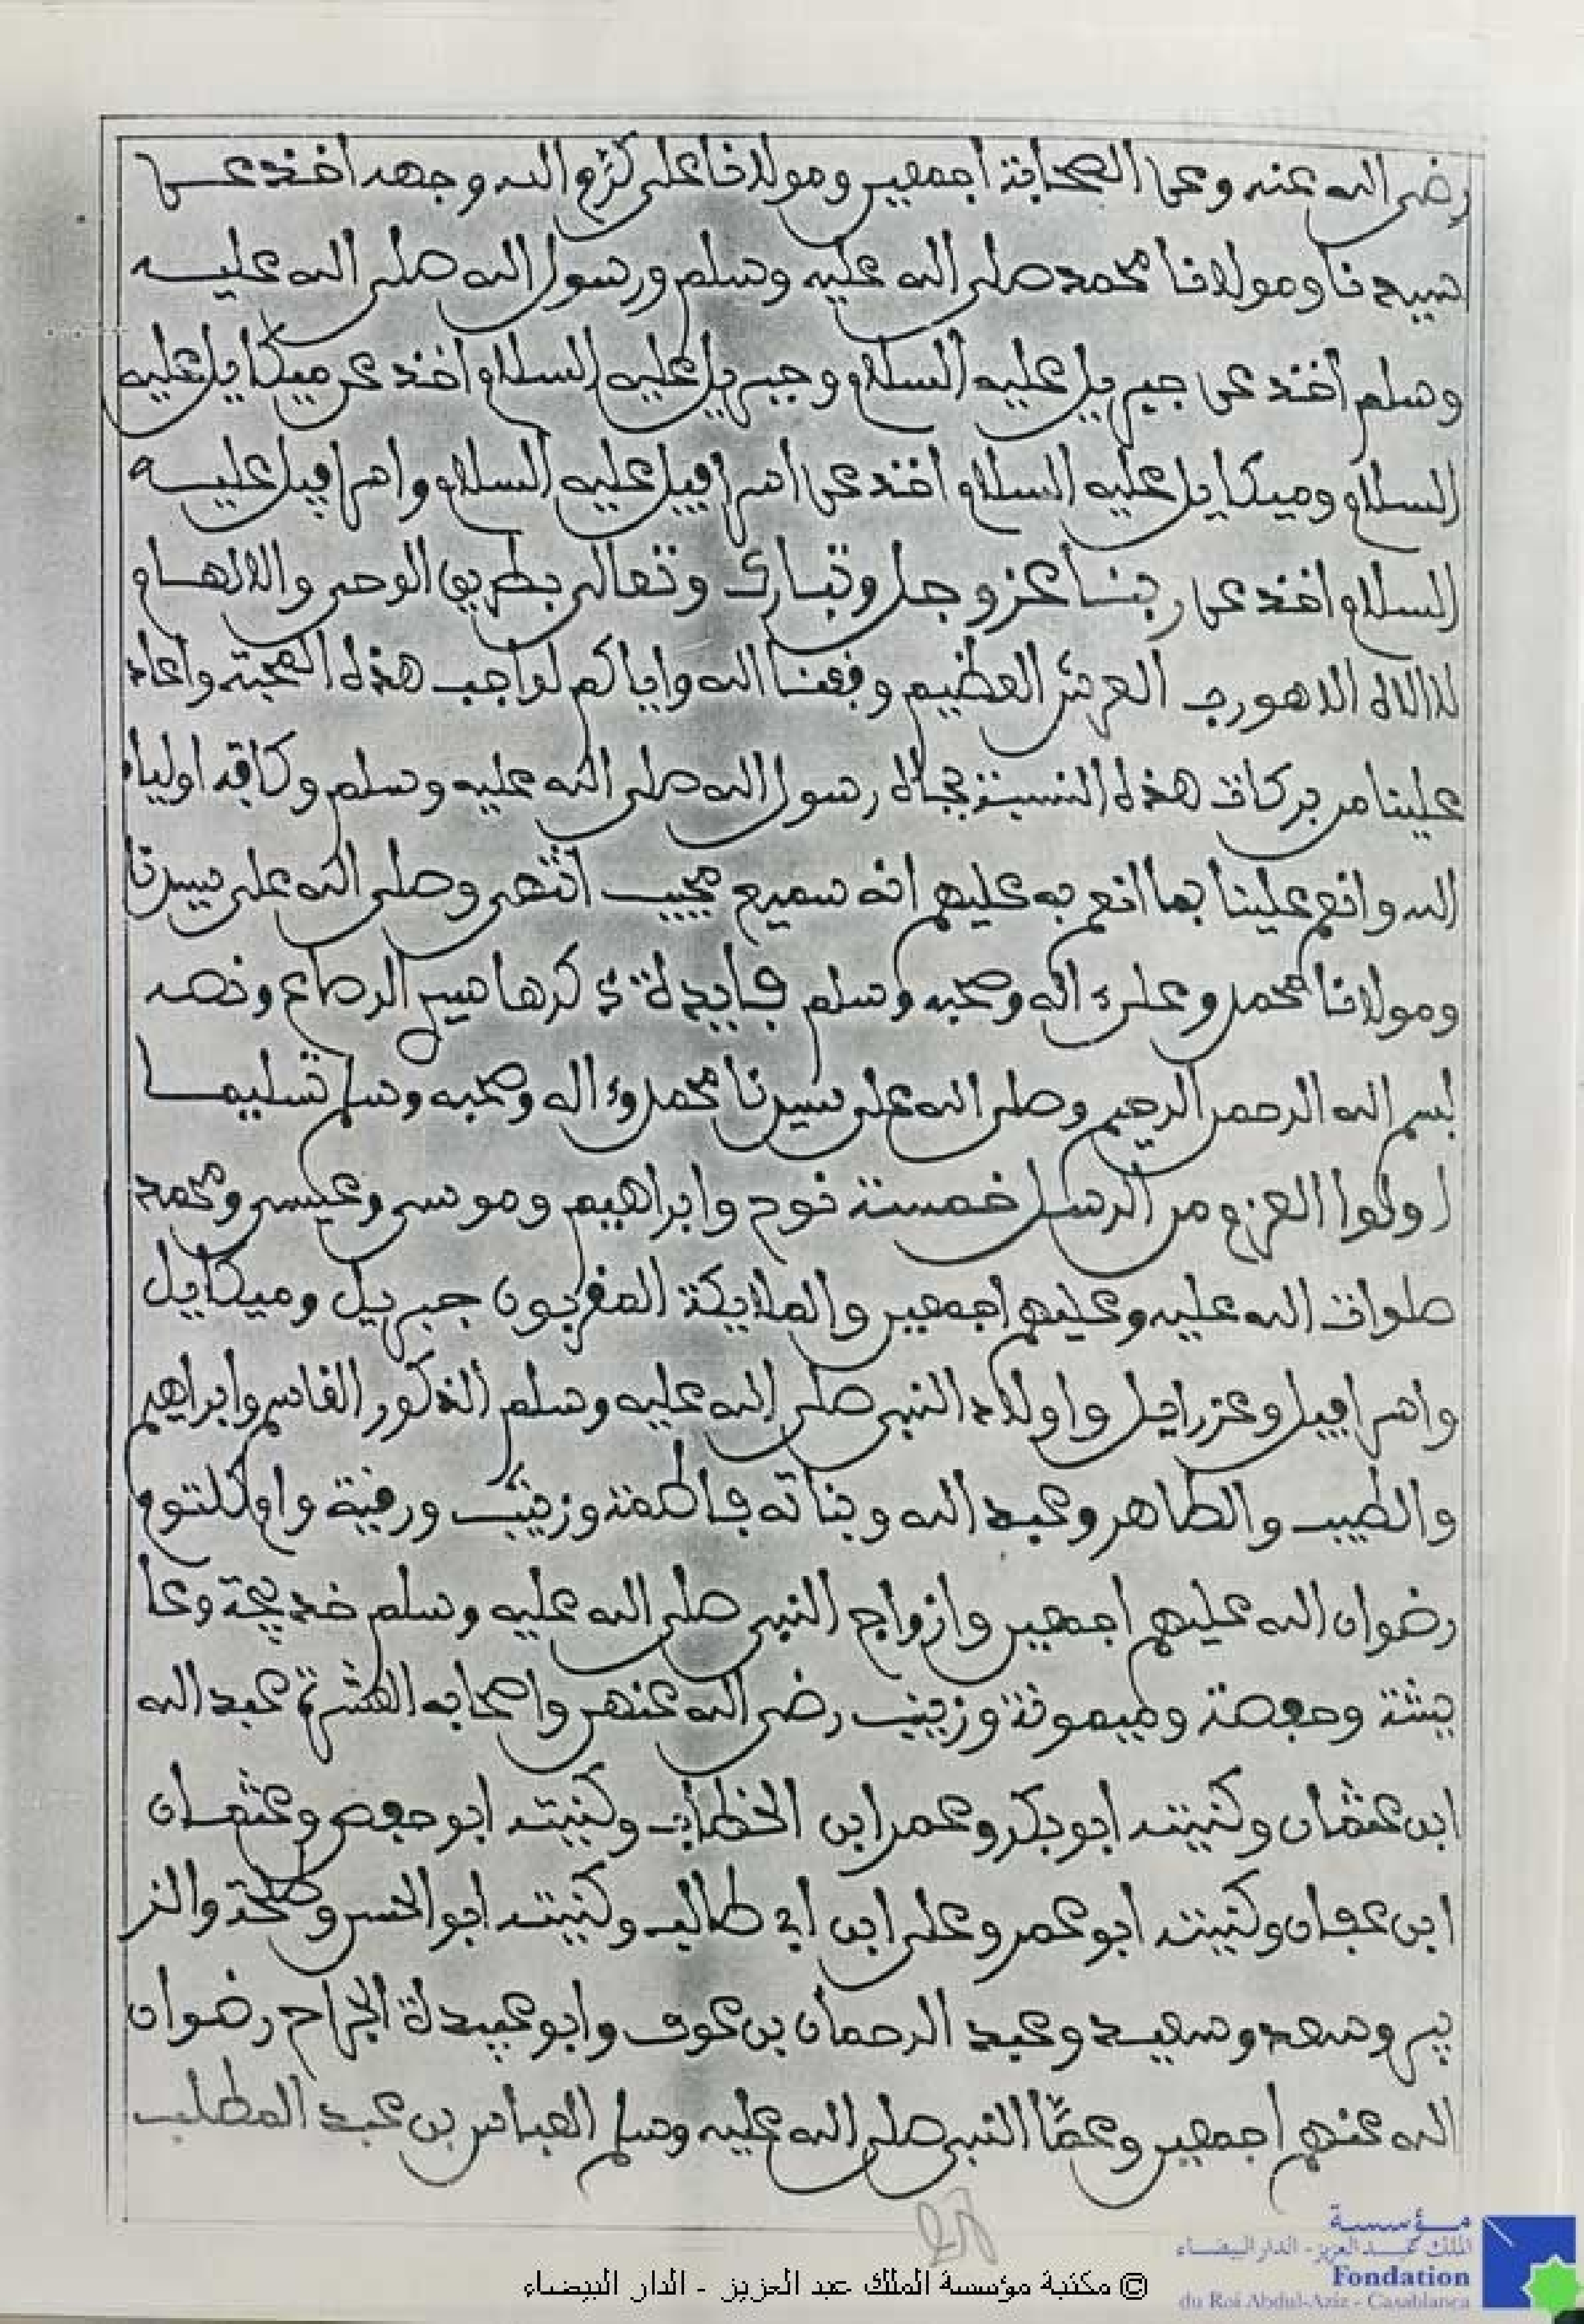 رضي الله عنه وعن الصحابة اجمعين ومولانا علي كرم الله وجهه اخذ عن
سيدنا ومولانا محمد صلى الله عليه وسلم ورسول الله صلى الله عليه
وسلم اخذ عن جبريل عليه السلام وجبريل عليه السلام اخذ عن ميكايل عليه
السلام وميكايل عليه السلام اخذ عن اسرافيل عليه السلام واسرافيل عليه
السلام اخذ عن ربنا عز وجل وتبارك وتعالى بطريق الوحي والالهام
لا الاه الا هو رب العرش العظيم وفقنا الله واياكم لواجب هذه المحبة واعاد
علينا من بركات هذه النسبة بجاه رسول الله صلى الله عليه وسلم وكافة اولياء
الله وانعم علينا بما انعم به عليهم انه سميع مجيب انتهى وصلى الله على سيدنا
ومولانا محمد وعلى ءاله وصحبه وسلم فايدة ذكرها سيدي الرصاع ونصه
بسم الله الرحمن الرحيم وصلى الله على سيدنا محمد وءاله وصحبه وسلم تسليما
اولوا العزوم من الرسل خمسة نوح وابراهيم وموسى وعيسى ومحمد
صلوات الله عليه وعليهم اجمعين والملايكة المقربون جبريل وميكايل
واسرافيل وعزرايل واولاد النبي صلى الله عليه وسلم الذكور القاسم وابراهيم
والطيب والطاهر وعبد الله وبناته فاطمة وزينب ورقية وام كلتوم
رضوان الله عليهم اجمعين وازواج النبي صلى الله عليه وسلم خديجة وعا
يشة وحفصة وميمونة وزينب رضي الله عنهن واصحابه العشرة عبد الله
ابن عثمان وكنيته ابو بكر وعمر ابن الخطاب وكنيته ابو حفص وعثمان
ابن عفان وكنيته ابو عمر وعلي ابن ابي طالب وكنيته ابو الحسن وطلحة والز
بير وسعد وسعيد وعبد الرحمان بن عوف وابو عبيدة الجراح رضوان
الله عنهم اجمعين وعما النبي صلى الله عليه وسلم العباس بن عبد المطلب
مؤسسة
الملك عبد العزيز - الدار البيضاء
Fondation
du Roi Abdul-Aziz - Casablanca
© مكتبة مؤسسة الملك عبد العزيز - الدار البيضاء